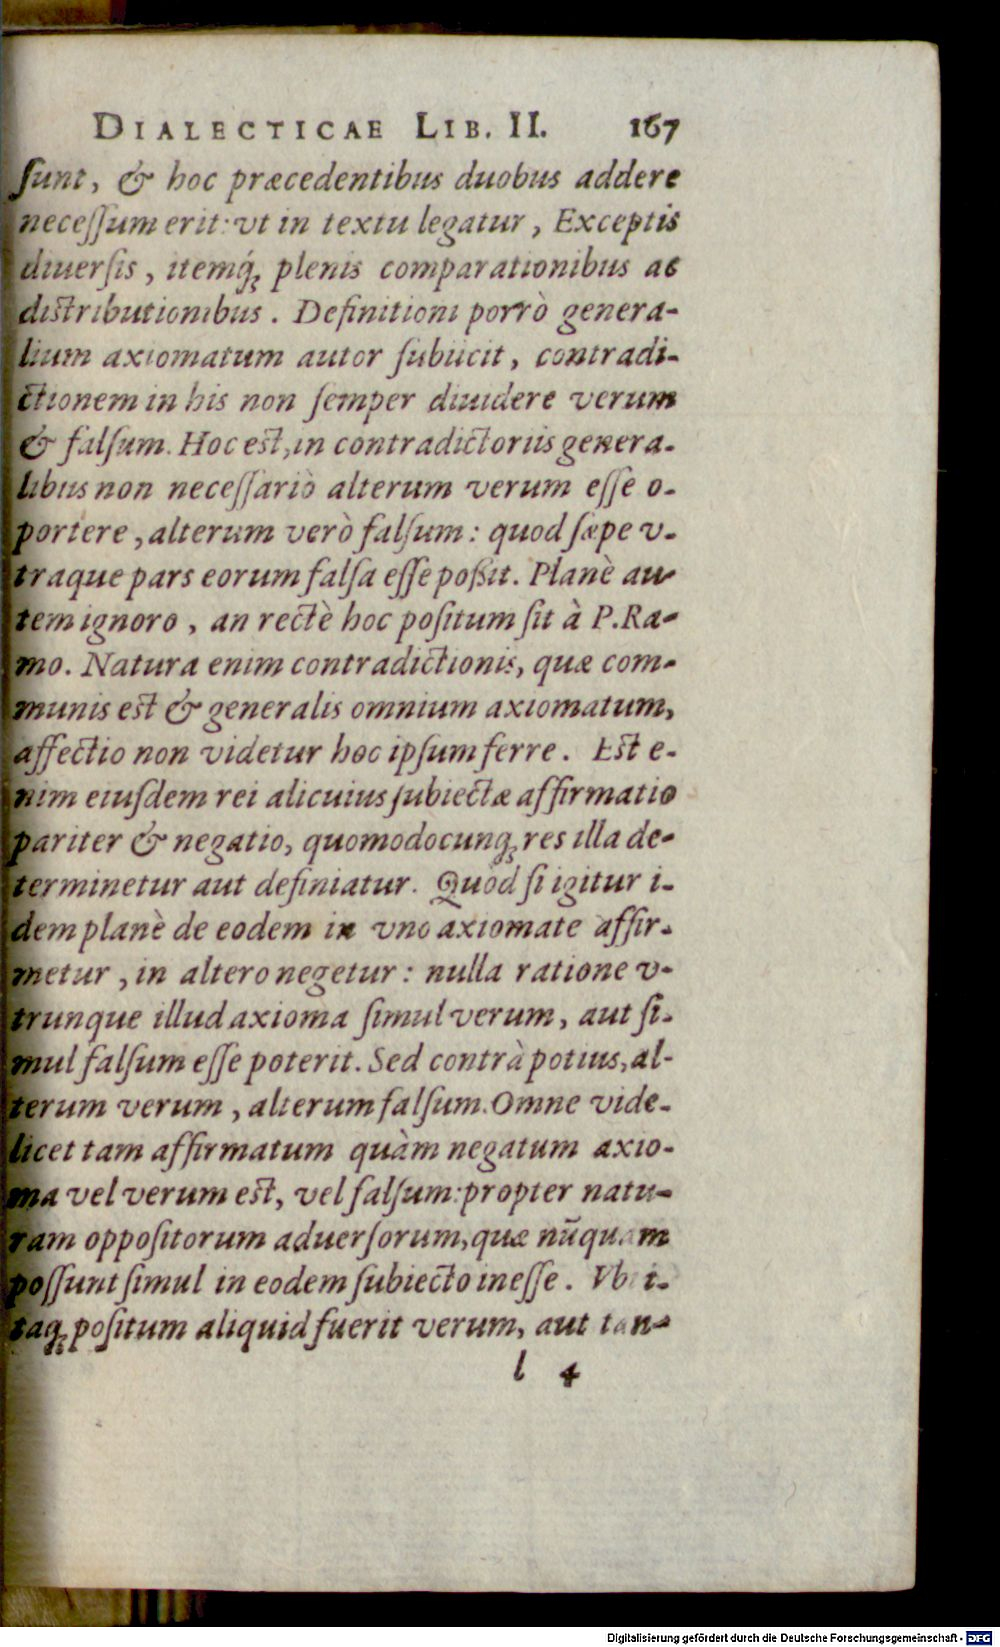 DIALECTICAE LIB. II. 167
ſunt, & hoc præcedentibus duobus addere
neceſſum erit: vt in textu legatur, Exceptis
diuerſis, itemq́; plenis comparationibus ac
distributionibus. Definitioni porrò genera-
lium axiomatum autor ſubiicit, contradi-
ctionem in his non ſemper diuidere verum
& falſum. Hoc est, in contradictoriis genera-
libus non neceſſariò alterum verum eſſe o-
portere, alterum verò falſum: quod ſæpe v-
traque pars eorum falſa eſſe poßit. Planè au-
tem ignoro, an rectè hoc poſitum ſit à P. Ra-
mo. Natura enim contradictionis, quæ com-
munis est & generalis omnium axiomatum,
affectio non videtur hoc ipſum ferre. Est e-
nim eiuſdem rei alicuius ſubiectæ affirmatio
pariter & negatio, quomodocunq; res illa de-
terminetur aut definiatur. Quòd ſi igitur i-
dem planè de eodem in vno axiomate affir-
metur, in altero negetur: nulla ratione v-
trunque illud axioma ſimul verum, aut ſi-
mul falſum eſſe poterit. Sed contrà potius, al-
terum verum, alterum falſum. Omne vide-
licet tam affirmatum quàm negatum axio-
ma vel verum est, vel falſum: propter natu-
ram oppoſitorum aduerſorum, quæ nūquam
poſſunt ſimul in eodem ſubiecto ineſſe. Vbi i-
taq; poſitum aliquid fuerit verum, aut tan-
l 4
Digitalisierung gefördert durch die Deutsche Forschungsgemeinschaft - DFG